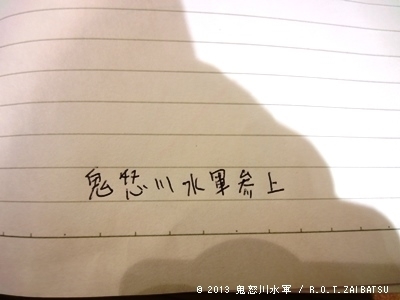 鬼怒川水軍参上
© 2013 鬼怒川水軍 / R.O.T.ZAIBATSU